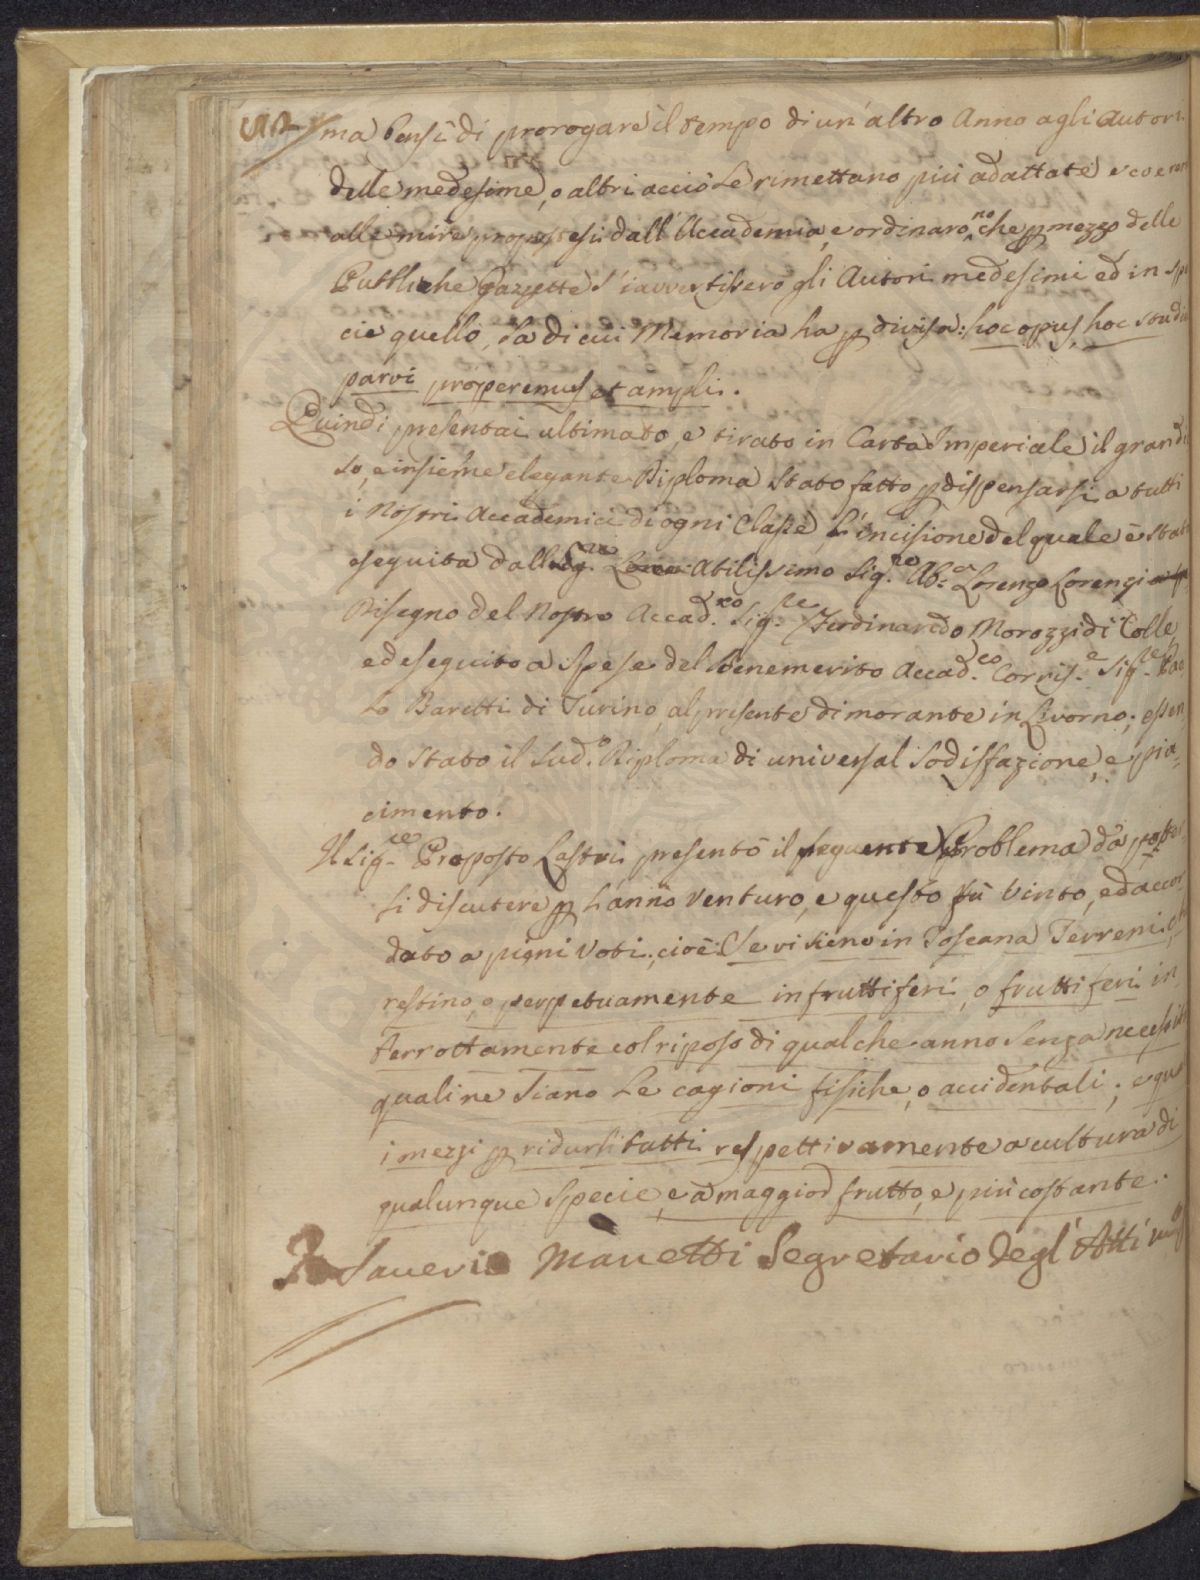 ma bensì di prorogare il tempo di un'altro Anno agli Autori
delle medesime, o altri acciò le rimettano più adattate e coerenti
alle mire propostesi dall'Accademia, e ordinaro,no che p mezzo delle
Pubbliche Gazzette s'avvertissero gli Autori medesimi ed in spe
cie quello, la di cui Memoria ha p divisa: hoc opus, hoc studiu
parvi properemus et ampli.
Quindi presentai ultimato, e tirato in Carta Imperiale il grandi
so, e insieme elegante Diploma stato fatto p dispensarsi a tutti
i Nostri Accademici di ogni Classe, L'incisione del quale è stata
eseguita dall' Abilissimo Sig.re Ab.e Lorenzo Lorenzi
Disegno del Nostro Accad.co Sig.re Ferdinando Morozzi di Colle,
ed eseguito a spese del benemerito Accad.co Corris.e Sig.re Pao
lo Baretti di Turino, al presente dimorante in Livorno; essen
do stato il sud.o Diploma di universal sodisfazione, e pia=
cimento.
Il Sig.re Proposto Lastri presentò il seguente Problema da poter
si discutere p l'anno venturo, e questo fù vinto, ed accor
dato a pieni voti, cioè: Se vi sieno in Toscana Terreni, che
restino, o perpetuamente infruttiferi, o fruttiferi in
terrottamente col riposo di qualche anno senza necessità
quali ne siano le cagioni fisiche, o accidentali; e qua
i mezzi p ridurli tutti respettivamente a cultura di
qualunque specie, e a maggior frutto, e più costante.
Saverio Manetti Segretario degl'Atti mp